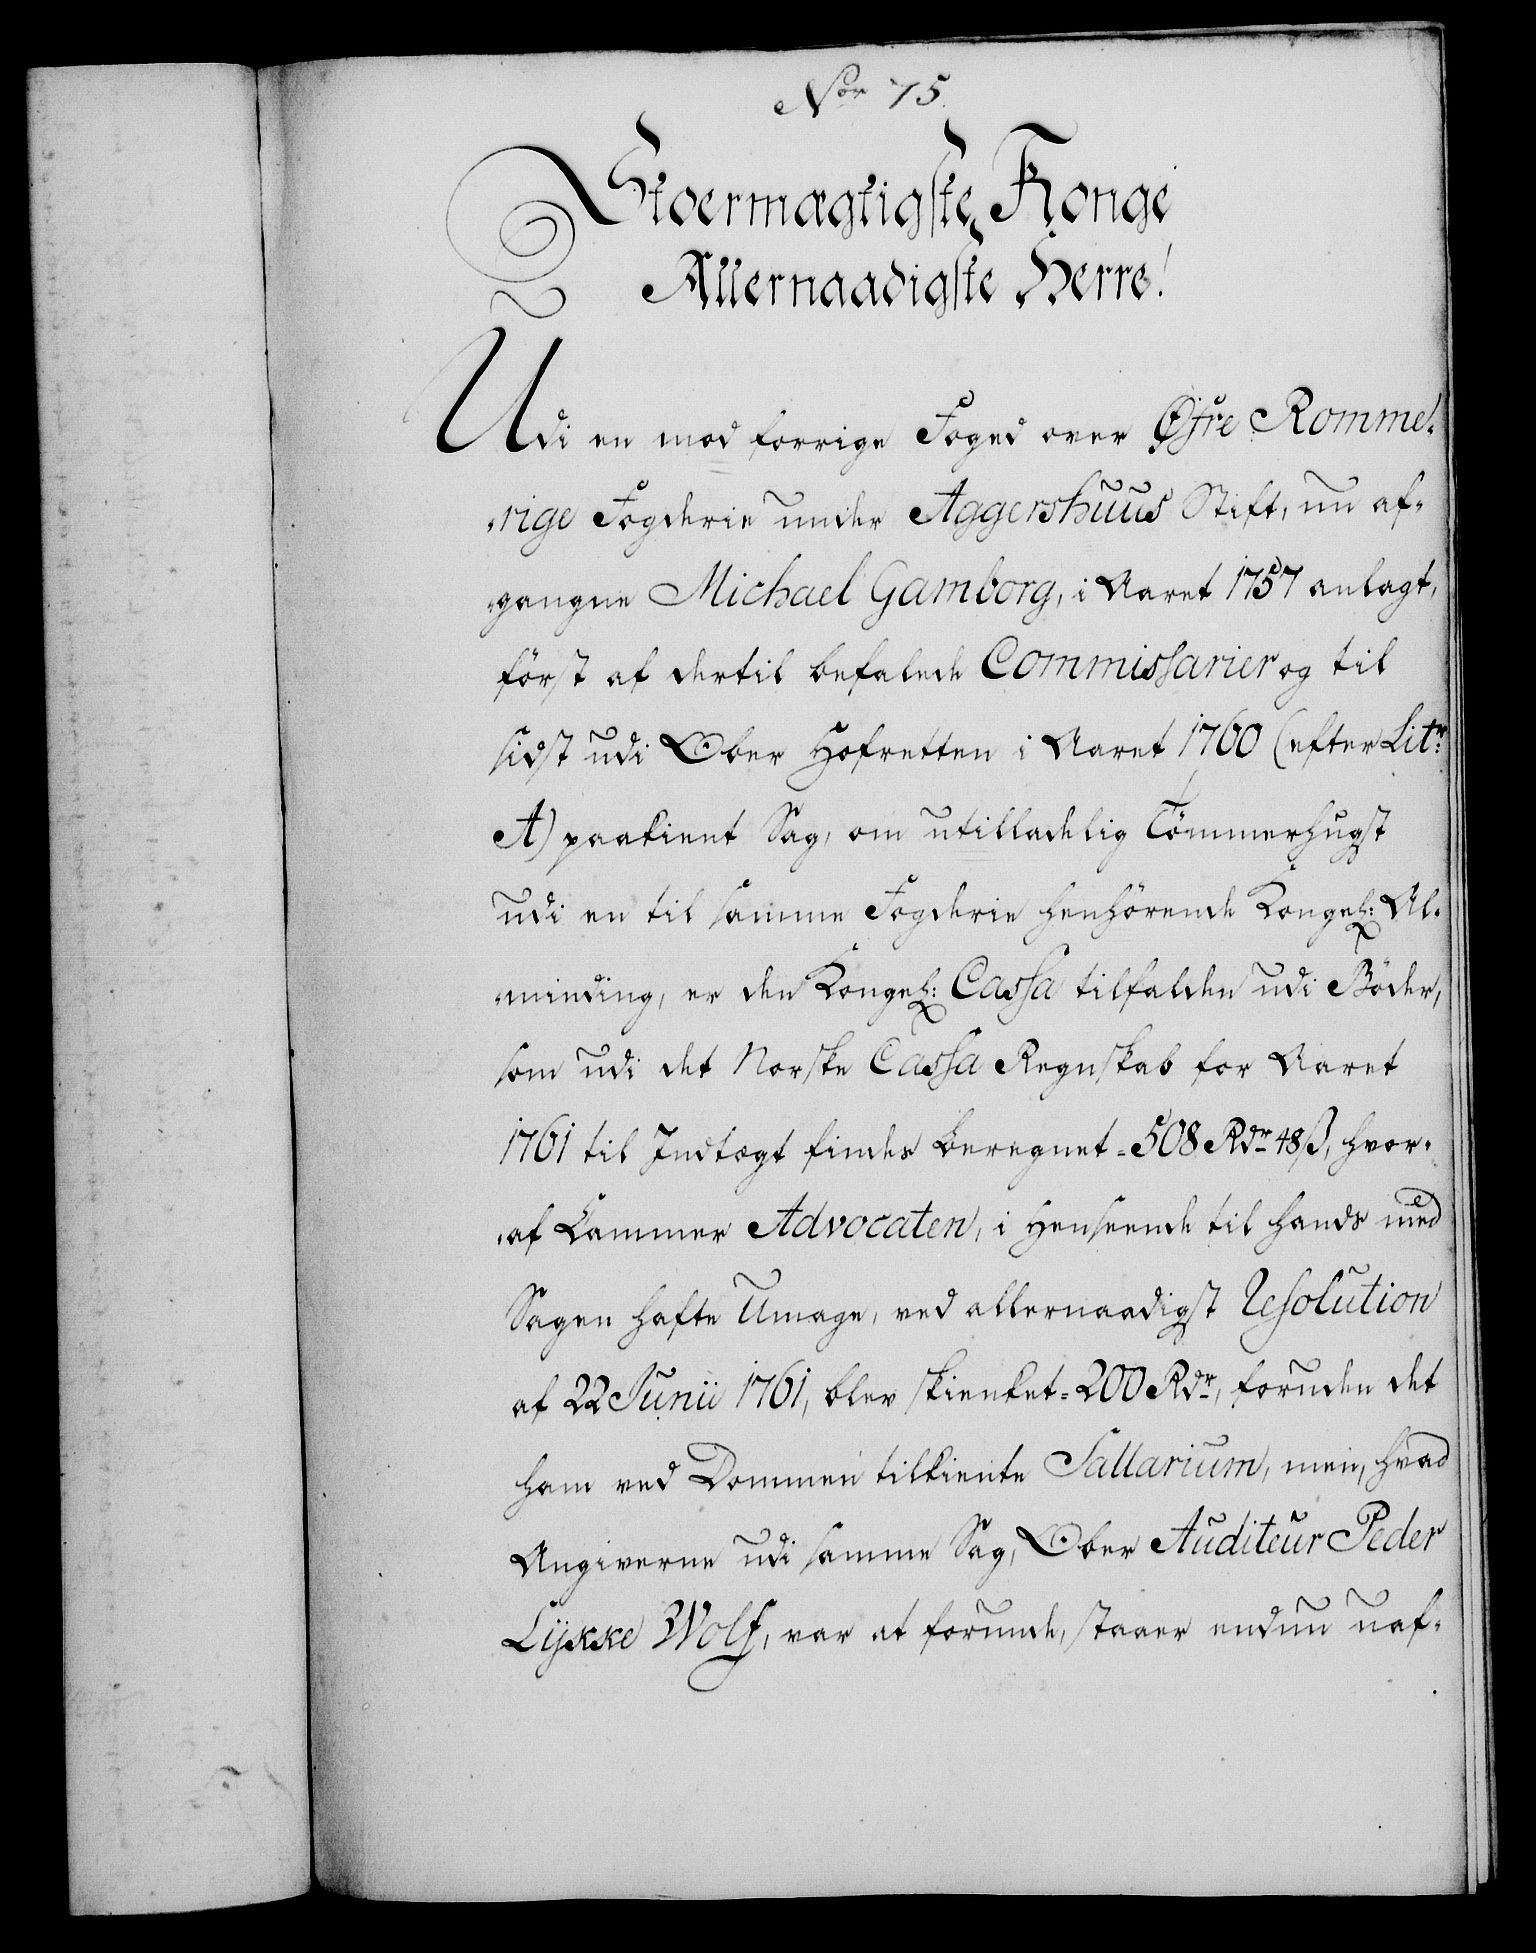 Nor 75.
Stoermægtigste Konge
Allernaadigste Herre!
Udi en mod forrige Foged over Øfre Romme-
-rige Fogderie under Aggershuus Stift, nu af-
-gangne Michael Gamborg, i Aaret 1757 anlagt,
först af dertil befalede Commissarier og til
sidst udi Ober Hofretten i Aaret 1760 (efter Litr
A) paakient Sag, om utilladelig Tömmerhugst
udi en til samme Fogderie henhörende Kongel: Al-
-minding, er den Kongel: Cassa tilfalden udi Böder,
som udi det Norske Cassa Regnskab for Aaret
1761 til Indtægt findes beregnet = 508 Rdr 48 ß, hvor-
-af Cammer Advocaten, i Henseende til hands med
Sagen hafte Umage, ved allernaadigst Resolution
af 22 Junii 1761, blev skienket = 200 Rdr, foruden det
ham ved Dommen tilkiente Sallarium, men, hvad
Angiverne udi samme Sag, Ober Auditeur Peder
Lykke Wolf, var at forunde, staaer endnu uaf-